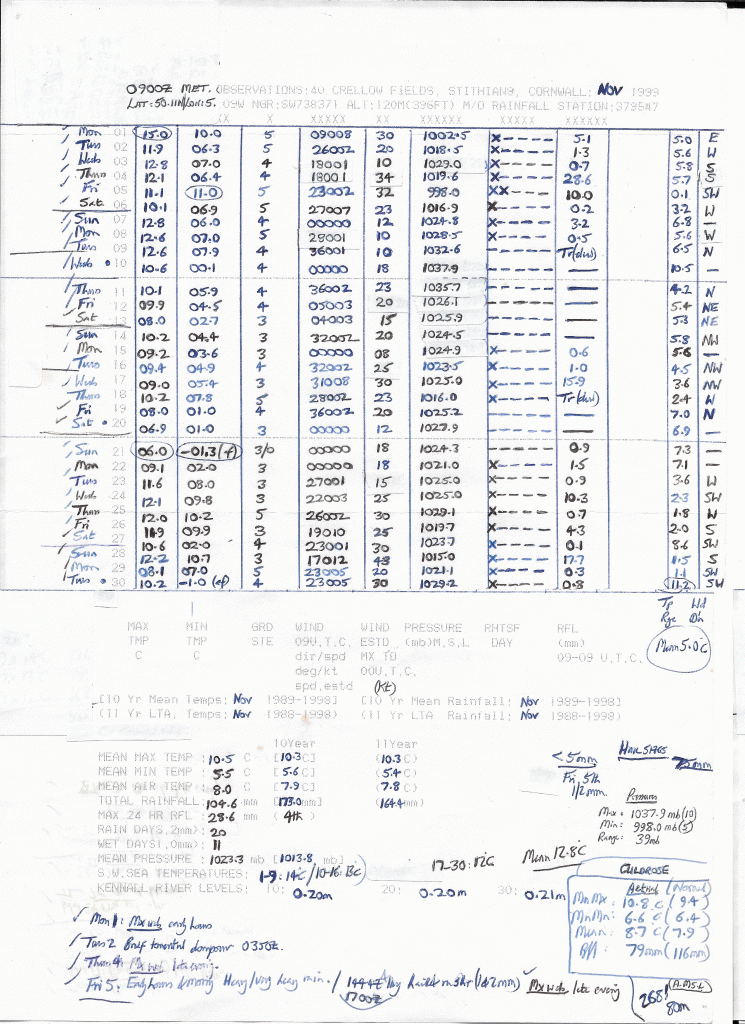 0900Z MET. OBSERVATIONS:40 CRELLOW FIELDS, STITHIANS, CORNWALL: Nov 1999
LAT:50.11N/LON:5.09W NGR:SW738371 ALT:120M(396FT) M/O RAINFALL STATION:379547
XX X XXXXX XX XXXXX XXXXX XXXXXX
Mon 01 15.0 10.0 5 09008 30 1002.5 X---- 5.1 5.0 E
Tues 02 11.9 06.3 5 26002 20 1018.5 X---- 1.3 5.6 W
Weds 03 12.8 07.0 4 18001 10 1029.0 X---- 0.7 5.8 S
Thurs 04 12.1 06.4 4 18001 34 1019.6 X---- 28.6 5.7 S
Fri 05 11.1 11.0 5 23002 32 998.0 XX--- 10.0 0.1 SW
Sat 06 10.1 06.9 5 27007 23 1016.9 X---- 0.2 3.2 W
Sun 07 12.8 06.0 4 00000 12 1024.8 X---- 3.2 6.8 —
Mon 08 12.6 07.0 5 28001 10 1028.5 X---- 0.5 5.6 W
Tues 09 12.6 07.9 4 36001 10 1032.6 X---- Tr(dw) 6.5 N
Weds 10 10.6 00.1 4 00000 18 1037.9 ----- — 10.5 —
Thurs 11 10.1 05.9 4 36002 23 1035.7 ----- — 4.2 N
Fri 12 09.9 04.5 4 05003 20 1026.1 ----- — 5.4 NE
Sat 13 08.0 02.7 3 04003 15 1025.9 ----- — 5.3 NE
Sun 14 10.2 04.4 3 32002 20 1024.5 ----- — 5.8 NW
Mon 15 09.2 03.6 3 00000 08 1024.9 X---- 0.6 5.6 —
Tues 16 09.4 04.9 4 32002 25 1023.5 X---- 1.0 4.5 NW
Weds 17 09.0 05.4 3 31008 30 1025.0 X---- 15.9 3.6 NW
Thurs 18 10.2 07.8 5 28002 23 1016.0 X---- Tr(dw) 2.4 W
Fri 19 08.0 01.0 4 36002 20 1025.2 ----- — 7.0 N
Sat 20 06.9 01.0 3 00000 12 1027.9 ----- — 6.9 —
Sun 21 06.0 -01.3(f) 3/0 00000 18 1024.3 ----- 0.9 7.3 —
Mon 22 09.1 02.0 3 00000 18 1021.0 X---- 1.5 7.1 —
Tues 23 11.6 08.0 3 27001 15 1025.0 X---- 0.9 3.6 W
Weds 24 12.1 09.8 3 22003 25 1025.0 X---- 10.3 2.3 SW
Thurs 25 12.0 10.2 5 26002 30 1029.1 X---- 0.7 1.8 W
Fri 26 11.9 09.9 3 19010 25 1019.7 X---- 4.3 2.0 S
Sat 27 10.6 02.0 4 23001 30 1023.7 X---- 0.1 8.6 SW
Sun 28 12.2 10.7 3 17012 43 1015.0 X---- 17.7 1.5 S
Mon 29 08.1 07.0 5 23005 20 1021.1 X---- 0.3 1.1 SW
Tues 30 10.2 -1.0 4 23005 30 1029.2 X---- 0.8 11.2 SW
MAX MIN GRD WIND WIND PRESSURE RHTSF RFL
TMP TMP STE 09U.T.C. ESTD (mb)M.S.L DAY (mm)
C C dir/spd MX TO 09-09 U.T.C.
deg/kt 00U.T.C.
spd.estd (kt)
Mean 5.0c
[10 Yr Mean Temps: Nov 1989-1998] [10 Yr Mean Rainfall: Nov 1989-1998]
(11 Yr LTA. Temps: Nov 1988-1998) (11 Yr LTA Rainfall: Nov 1988-1998)
10Year 11Year
MEAN MAX TEMP : 10.5 C [10.3 C] (10.3 C)
MEAN MIN TEMP : 5.5 C [5.6 C] (5.4 C)
MEAN AIR TEMP : 8.0 C [7.9 C] (7.8 C)
TOTAL RAINFALL: 104.6 mm [173.0 mm] (164.4 mm)
MAX 24 HR RFL : 28.6 mm 4th
RAIN DAYS,2mm): 20
WET DAYS1,0mm): 11
MEAN PRESSURE : 1023.3 mb [1013.8 mb]
S.W.SEA TEMPERATURES: 1-9: 14c / 10-16: 13c 17-30: 12c Mean 12.8c
KENNALL RIVER LEVELS: 10: 0.20m 20: 0.20m 30: 0.21m
<5mm
Fri 5th
1/2mm
Hailstones
Pressure
Max: 1037.9mb(10)
Min: 998.0mb(5)
Range: 39mb
CULDROSE
Actual (Normal)
MnMx: 10.8c (9.4)
MnMn: 6.6c (6.4)
Mean: 8.7c (7.9)
79mm (116mm)
Mon 1: Mx wds early hours
Tues 2 Brief torrential downpour 0350Z.
Thurs 4: Mx wds late evening.
Fri 5. Early hours & morning Heavy 1700Z Mx wds late evening
268ft
80m